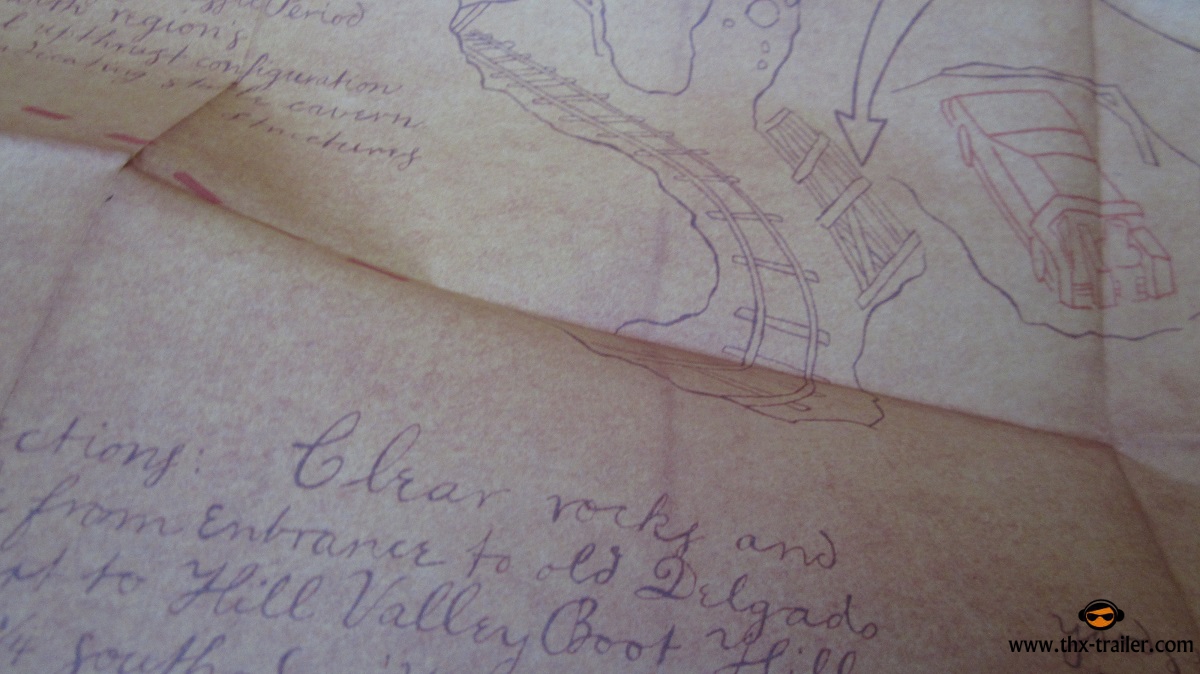 Period
region's
upthrust configuration
cavern
structures
ctions: Clear rocks and
from Entrance to old Delgado
to Hill Valley Boot Hill
1/4 south
www.thx-trailer.com